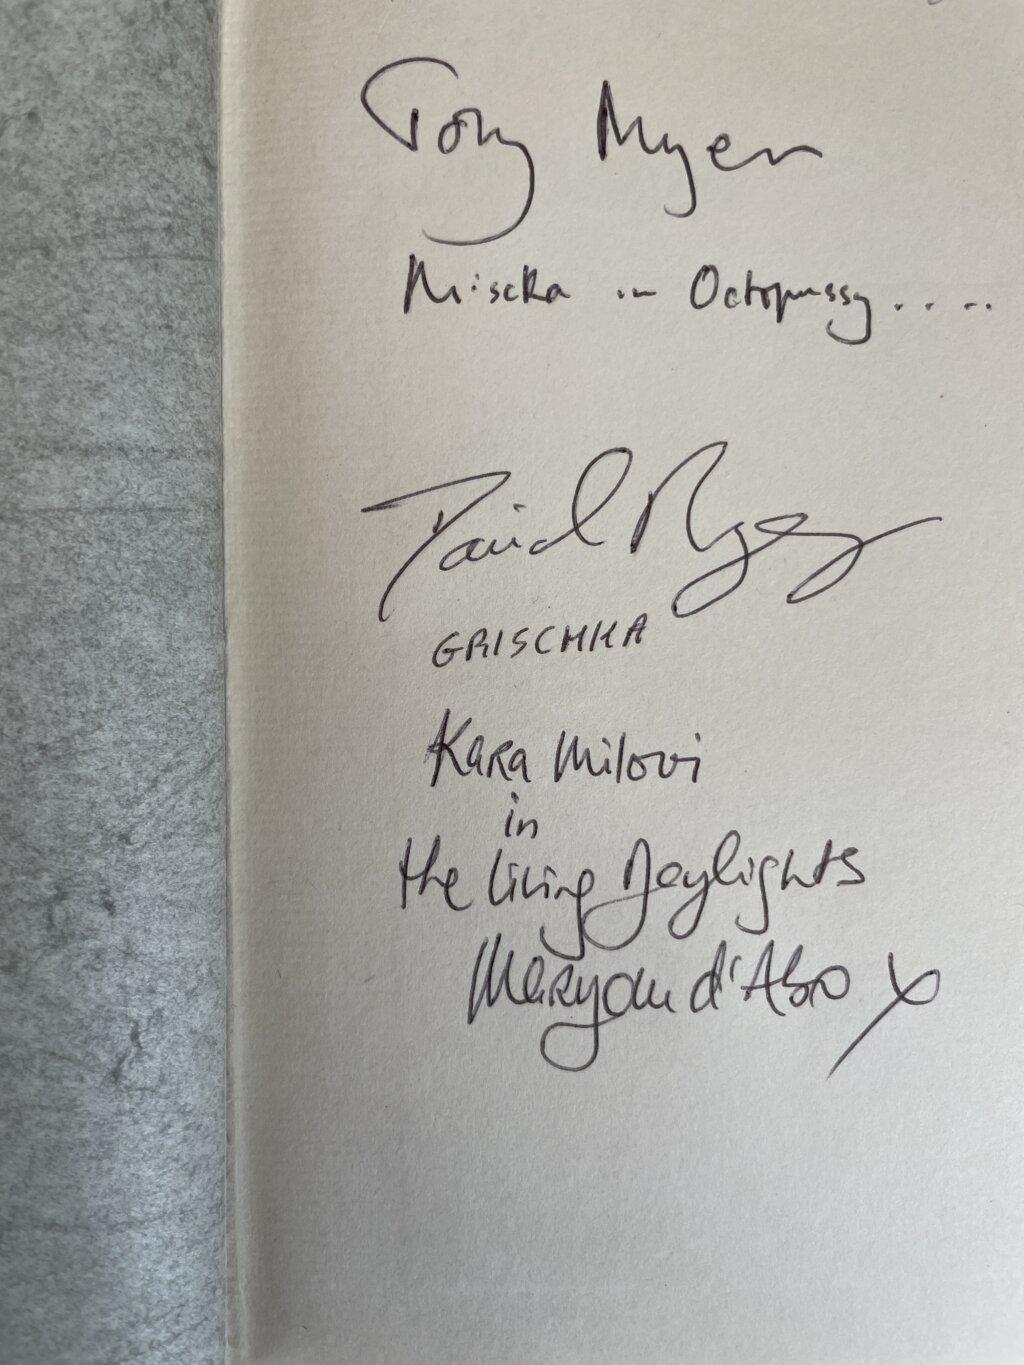 Tony Meyer
Mischka in Octopussy.....
David Meyer
GRISCHKA
Kara Milovi
in
the Living Daylights
Maryam d'Abo x